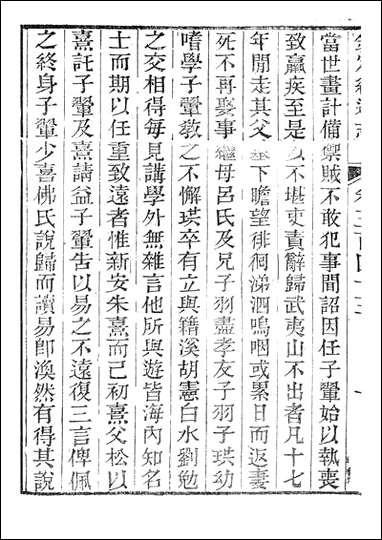 當世畫計備禦賊不敢犯事聞詔因任子翬始以執喪
致羸疾至是以不堪吏責辭歸武夷山不出者凡十七
年間走其父墓下瞻望徘徊涕泗嗚咽或累日而返妻
死不再娶事繼母呂氏及兄子羽盡孝友子羽子珙幼
嗜學子翬教之不懈珙卒有立與籍溪胡憲白水劉勉
之交相得每見講學外無雜言他所與遊皆海內知名
士而期以任重致遠者惟新安朱熹而已初熹父松以
熹託子翬及熹請益子翬告以易之不遠復三言俾佩
之終身子翬少喜佛氏說歸而讀易卽渙然有得其說